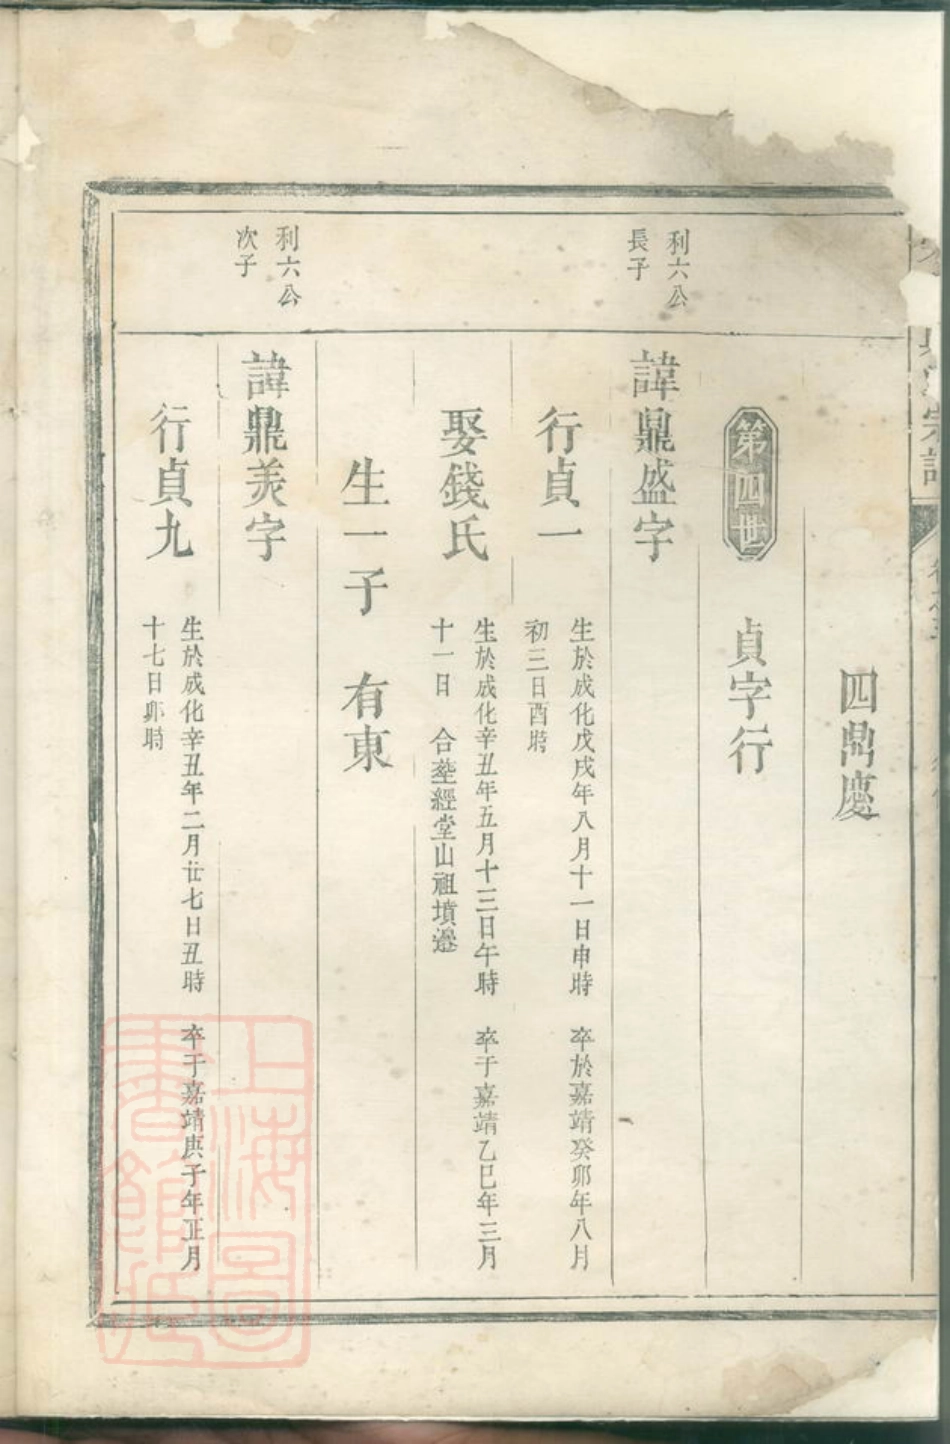 宗譜
四鼎慶
第四世
貞字行
利六公
長子
諱鼎盛字
行貞一
生於成化戊戌年八月十一日申時 卒於嘉靖癸卯年八月
初三日酉時
娶錢氏
生於成化辛丑年五月十三日午時 卒于嘉靖乙巳年三月
十一日 合塟經堂山祖墳邉
生一子 有東
利六公
次子
諱鼎美字
行貞九
生於成化辛丑年二月廿七日丑時 卒于嘉靖庚子年正月
十七日卯時
上海圖
書館藏